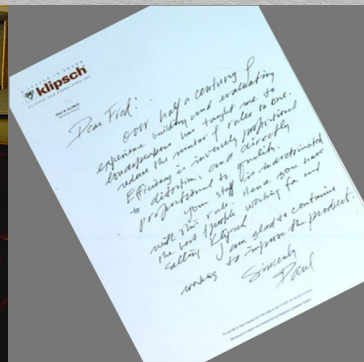 klipsch
Dear Fred:
Over half a century of
experience building and evaluating
loudspeakers has taught me to
reduce the number of rules to one.
Efficiency is inversely proportional
to distortion, and directly
proportional to quality.
your staff is indoctrinated
with this rule. Hence you have
the best people working for and
selling Klipsch
I am glad to continue
working to improve the product.
Sincerely
Paul